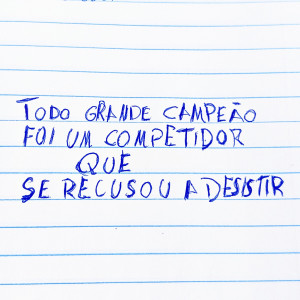 TODO GRANDE CAMPEÃO
FOI UM COMPETIDOR
QUE
SE RECUSOU A DESISTIR